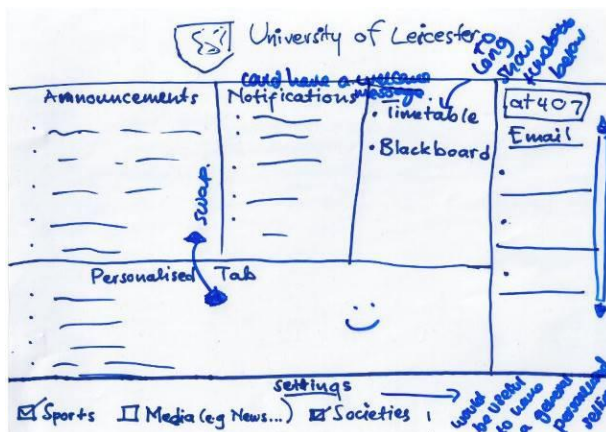 University of Leicester
To long
show
timetable
below
could have a welcome
message
Announcements
Notifications
• Timetable
• Blackboard
at407
Email
swap.
Personalised Tab
settings
Sports
Media (e.g News...)
Societies
would
be useful
to have
a general
personalised